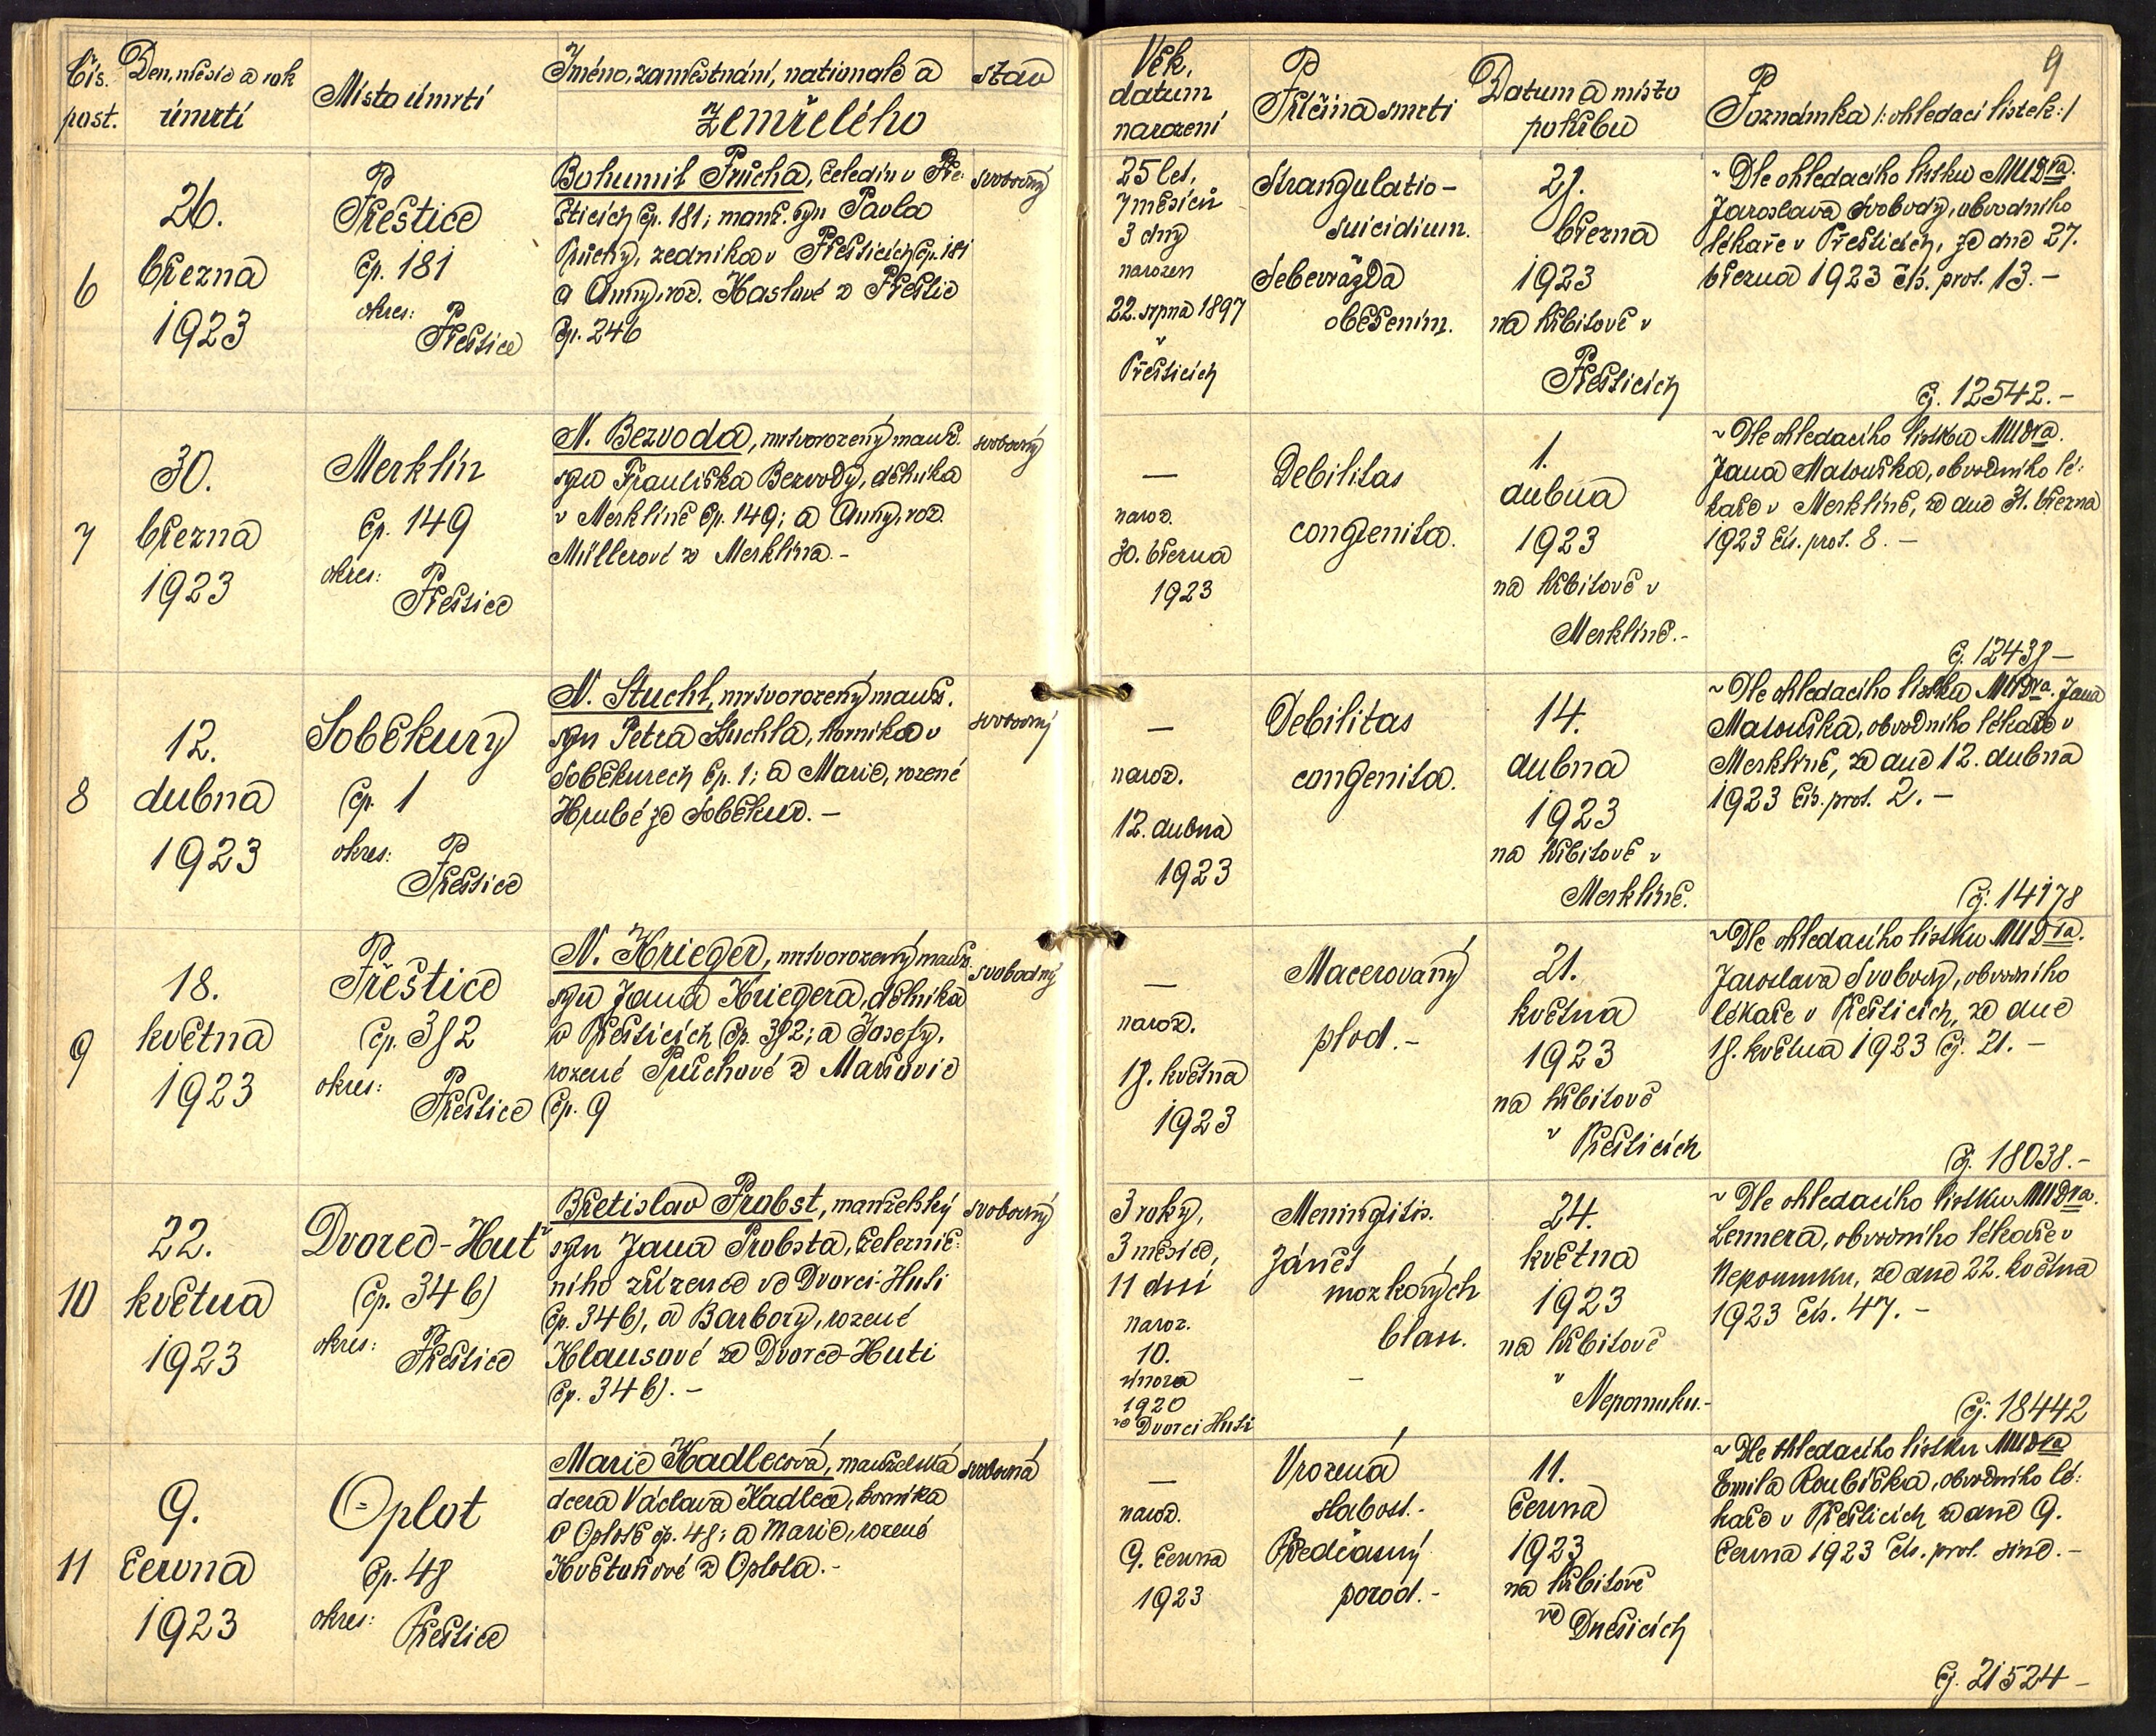 Čís.
post.
Den, měsíc a rok
úmrtí
Místo úmrtí
Jméno, zaměstnání, nationale a
zemřelého
stav
Věk,
datum
narození
Příčina smrti
Datum a místo
pohřbu
Poznámka /: ohledací lístek:/
9
6
26.
března
1923
Přeštice
čp. 181
okres:
Přeštice
Bohumil Průcha, čeledín v Pře:
šticích čp. 181; manž. syn Pavla
Průchy, zedníka v Přešticích čp. 181
a Anny, roz. Haslové z Přeštic
čp. 246
svobodný
25 let,
7 měsíců
3 dny
narozen
22. srpna 1897
v
Přešticích
Strangulatio-
suicidium.
Sebevražda
oběšením.
28.
března
1923
na hřbitově v
Přešticích
~ Dle ohledacího lístku MUDra.
Jaroslava Svobody, obvodního
lékaře v Přešticích, ze dne 27.
března 1923 čís. prot. 13.-
čj. 12542.-
7
30.
března
1923
Merklín
čp. 149
okres:
Přeštice
N. Bezvoda, mrtvorozený manž.
syn Františka Bezvody, dělníka
v Merklíně čp. 149; a Anny, roz.
Müllerové z Merklína.-
svobodný
—
naroz.
30. března
1923
Debilitas
congenita.
1.
dubna
1923
na hřbitově v
Merklíně.-
~ Dle ohledacího lístku MUDra.
Jana Matouška, obvodního lé:
kaře v Merklíně, ze dne 31. března
1923 čís. prot. 8.-
čj. 12438-
8
12.
dubna
1923
Soběkury
čp. 1
okres:
Přeštice
N. Stuchl, mrtvorozený manž.
syn Petra Stuchla, horníka v
Soběkurech čp. 1; a Marie, rozené
Hrubé ze Soběkur.-
svobodný
—
naroz.
12. dubna
1923
Debilitas
congenita.
14.
dubna
1923
na hřbitově v
Merklíně.
~ Dle ohledacího lístku MUDra. Jana
Matouška, obvodního lékaře v
Merklíně, ze dne 12. dubna
1923 čís. prot. 2.-
čj. 14178
9
18.
května
1923
Přeštice
čp. 382
okres:
Přeštice
N. Krieger, mrtvorozený manž.
syn Jana Kriegera, dělníka
v Přešticích čp. 382; a Josefy,
rozené Průchové z
čp. 9
svobodný
—
naroz.
18. května
1923
Macerovaný
plod.-
21.
května
1923
na hřbitově
v Přešticích
~ Dle ohledacího lístku MUDra.
Jaroslava Svobody, obvodního
lékaře v Přešticích, ze dne
18. května 1923 čj. 21.-
čj. 18038.-
10
22.
května
1923
Dvorec-Huť
čp. 34 b)
okres:
Přeštice
Břetislav Probst, manželský
syn Jana Probsta, železnič:
ního zřízence ve Dvorci-Huti
čp. 34 b), a Barbory, rozené
Klausové ze Dvorce-Huti
čp. 34 b).-
svobodný
3 roky,
3 měsíce,
11 dní
naroz.
10.
února
1920
ve Dvorci Huti
Meningitis.
Zánět
mozkových
blan.
-
24.
května
1923
na hřbitově
v Nepomuku.-
~ Dle ohledacího lístku MUDra.
Lennera, obvodního lékaře v
Nepomuku, ze dne 22. května
1923 čís. 47.-
čj. 18442
11
9.
června
1923
Oplot
čp. 48
okres:
Přeštice
Marie Kadlecová, manželská
dcera Václava Kadleca, horníka
v Oplotě čp. 48; a Marie, rozené
Květoňové z Oplota.-
svobodná
—
naroz.
9. června
1923
Vrozená
slabost.-
Předčasný
porod.-
11.
června
1923
na hřbitově
ve Dnešicích
~ Dle ohledacího lístku MUDra
Emila Roubíčka, obvodního lé:
kaře v Přešticích ze dne 9.
června 1923 čís. prot. sine.-
čj. 21524-